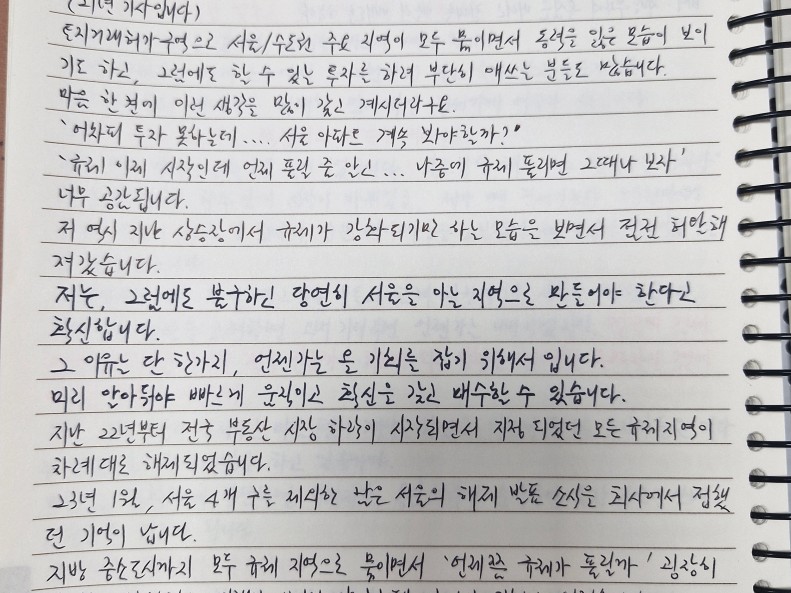 (21년 기사입니다)
토지거래허가구역으로 서울/수도권 주요 지역이 모두 묶이면서 동력을 잃은 모습이 보이
기도 하고, 그럼에도 할 수 있는 투자를 하려 부단히 애쓰는 분들도 많습니다.
마음 한켠에 이런 생각을 많이 갖고 계시더라구요.
'어차피 투자 못하는데.... 서울 아파트 계속 봐야할까?'
'규제 이제 시작인데 언제 풀릴 줄 알고... 나중에 규제 풀리면 그때나 보자'
너무 공감됩니다.
저 역시 지난 상승장에서 규제가 강화되기만 하는 모습을 보면서 점점 허탈해
져갔습니다.
저는, 그럼에도 불구하고 당연히 서울을 아는 지역으로 만들어야 한다고
확신합니다.
그 이유는 단 한가지, 언젠가는 올 기회를 잡기 위해서 입니다.
미리 알아둬야 빠르게 움직이고 확신을 갖고 매수할 수 있습니다.
지난 22년부터 전국 부동산 시장 하락이 시작되면서 지정 되었던 모든 규제지역이
차례대로 해제되었습니다.
23년 1월, 서울 4개 구를 제외한 남은 서울의 해제 발표 소식을 회사에서 접했
던 기억이 납니다.
지방 중소도시까지 모두 규제 지역으로 묶이면서 '언제쯤 규제가 풀릴까' 굉장히